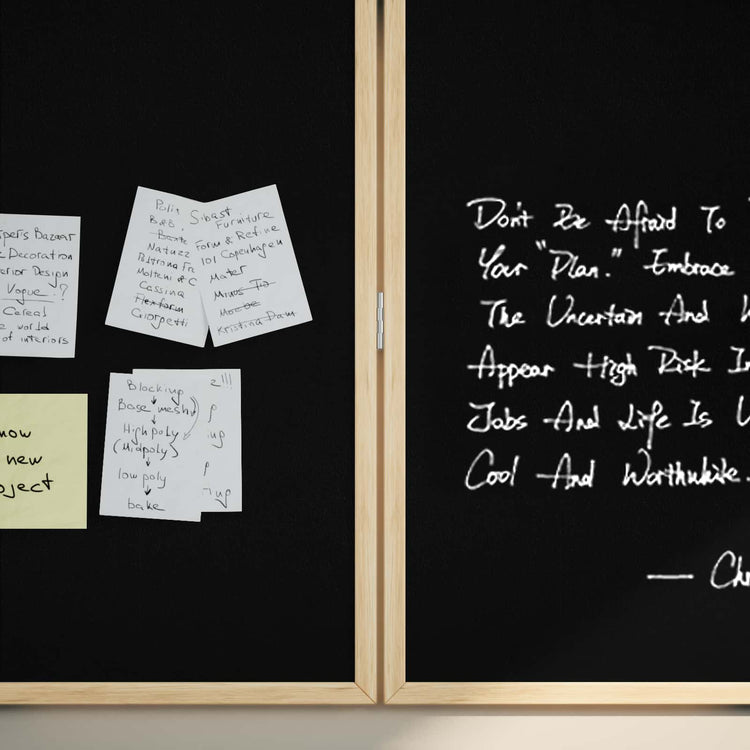 Bazaar
Decoration
Design
Vogue ?
Cereal
world
of interiors
now
new
B&B
Natuzz
Molteni & C
Cassina
Flexform
Giorgetti
Sibast
Furniture
Form & Refine
101 Copenhagen
Mater
Kristina Dam
Blocking
Base mesh
High poly
(Midpoly)
low poly
bake
2!!!
p
ing
p
ing
Don't Be Afraid To
Your "Plan." Embrace
The Uncertain And
Appear High Risk In
Jobs And Life Is
Cool And Worthwhile.
—